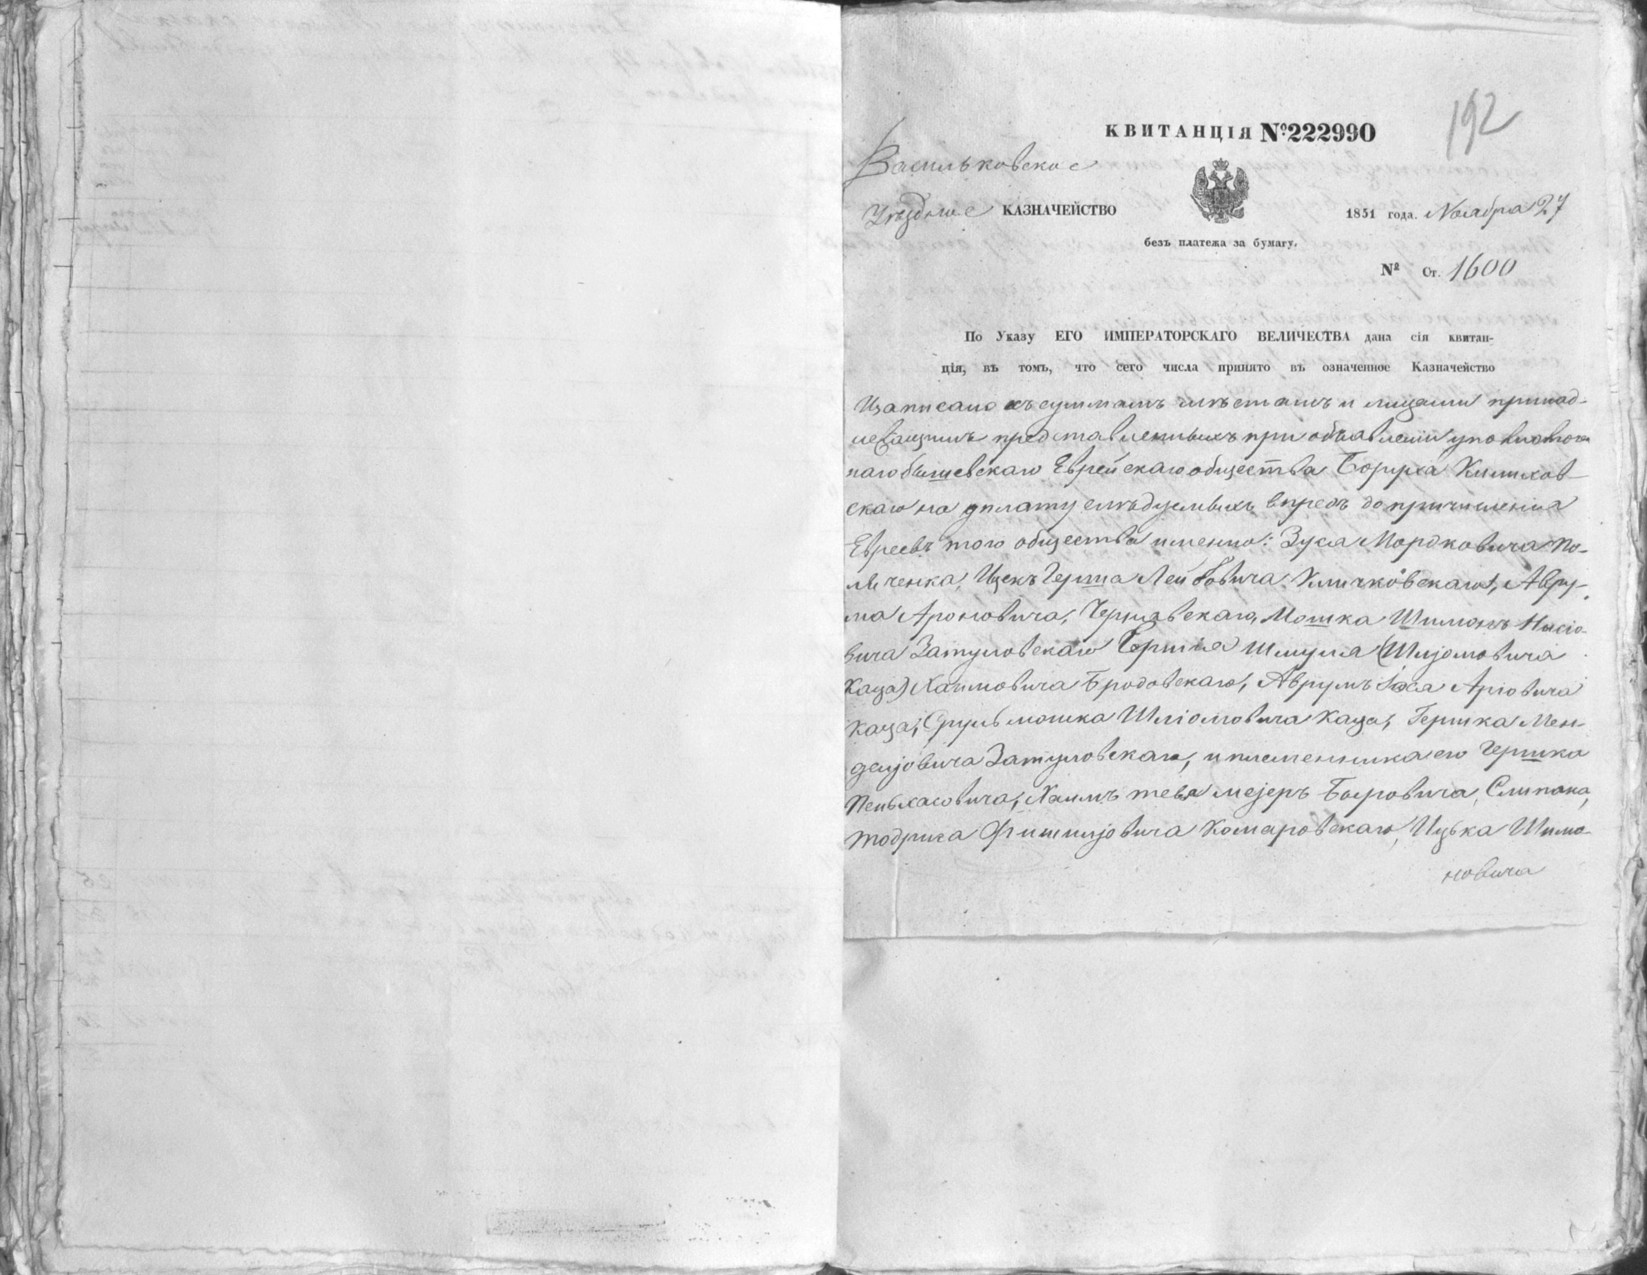 192
КВИТАНЦІЯ №222990
Васильковское
Уѣздное КАЗНАЧЕЙСТВО
1851 года. Ноября 27
безъ платежа за бумагу.
№ Ст. 1600
По Указу ЕГО ИМПЕРАТОРСКАГО ВЕЛИЧЕСТВА дана сія квитан-
ція, въ томъ, что сего числа принято въ означенное Казначейство
Изаписано къ суммамъ мѣстамъ и лицами принад-
лежащимъ представленныхъ при объавленіи уповномоч
наго бышевскаго Еврейскаго общества Боруха Климхов-
скаго на уплату слѣдуемыхъ впредь до причисленія
Евреевъ того общества именно: Зуся Мордковича По-
ляченка, Ицекъ Герша Лейбовича Уличковскаго, Авру-
ма Ароновича, Чернявскаго, Мошка Шимонъ
вича Затуловскаго Шмуля (Шлjомовича
Каца) Хаимовича Бродовскаго, Аврумъ Аріовича
Каца, Сруль мошка Шліомовича Каца, Гершка Мен-
делjовича Затуловскаго, и племенника его Гершка
Пеньхасовича, Хаимъ тевя меjеръ Боровича, Слипака,
тодриса Фишилjовича Комаровскаго, Ицька Шимо-
новича